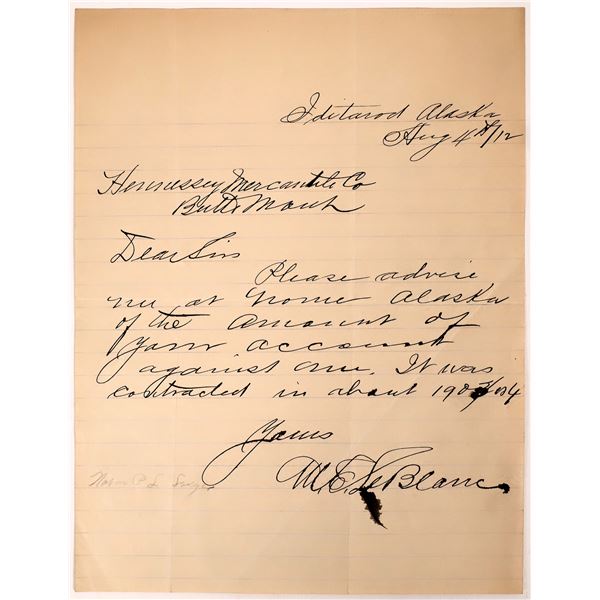 Iditarod Alaska
Aug 4th/12
Hennessey Mercantile Co
Butte Mont
Dear Sir
Please advise
me at Nome Alaska
of the amount of
your account
against me. It was
contracted in about 1903/04
Yours
M.E. LeBlanc